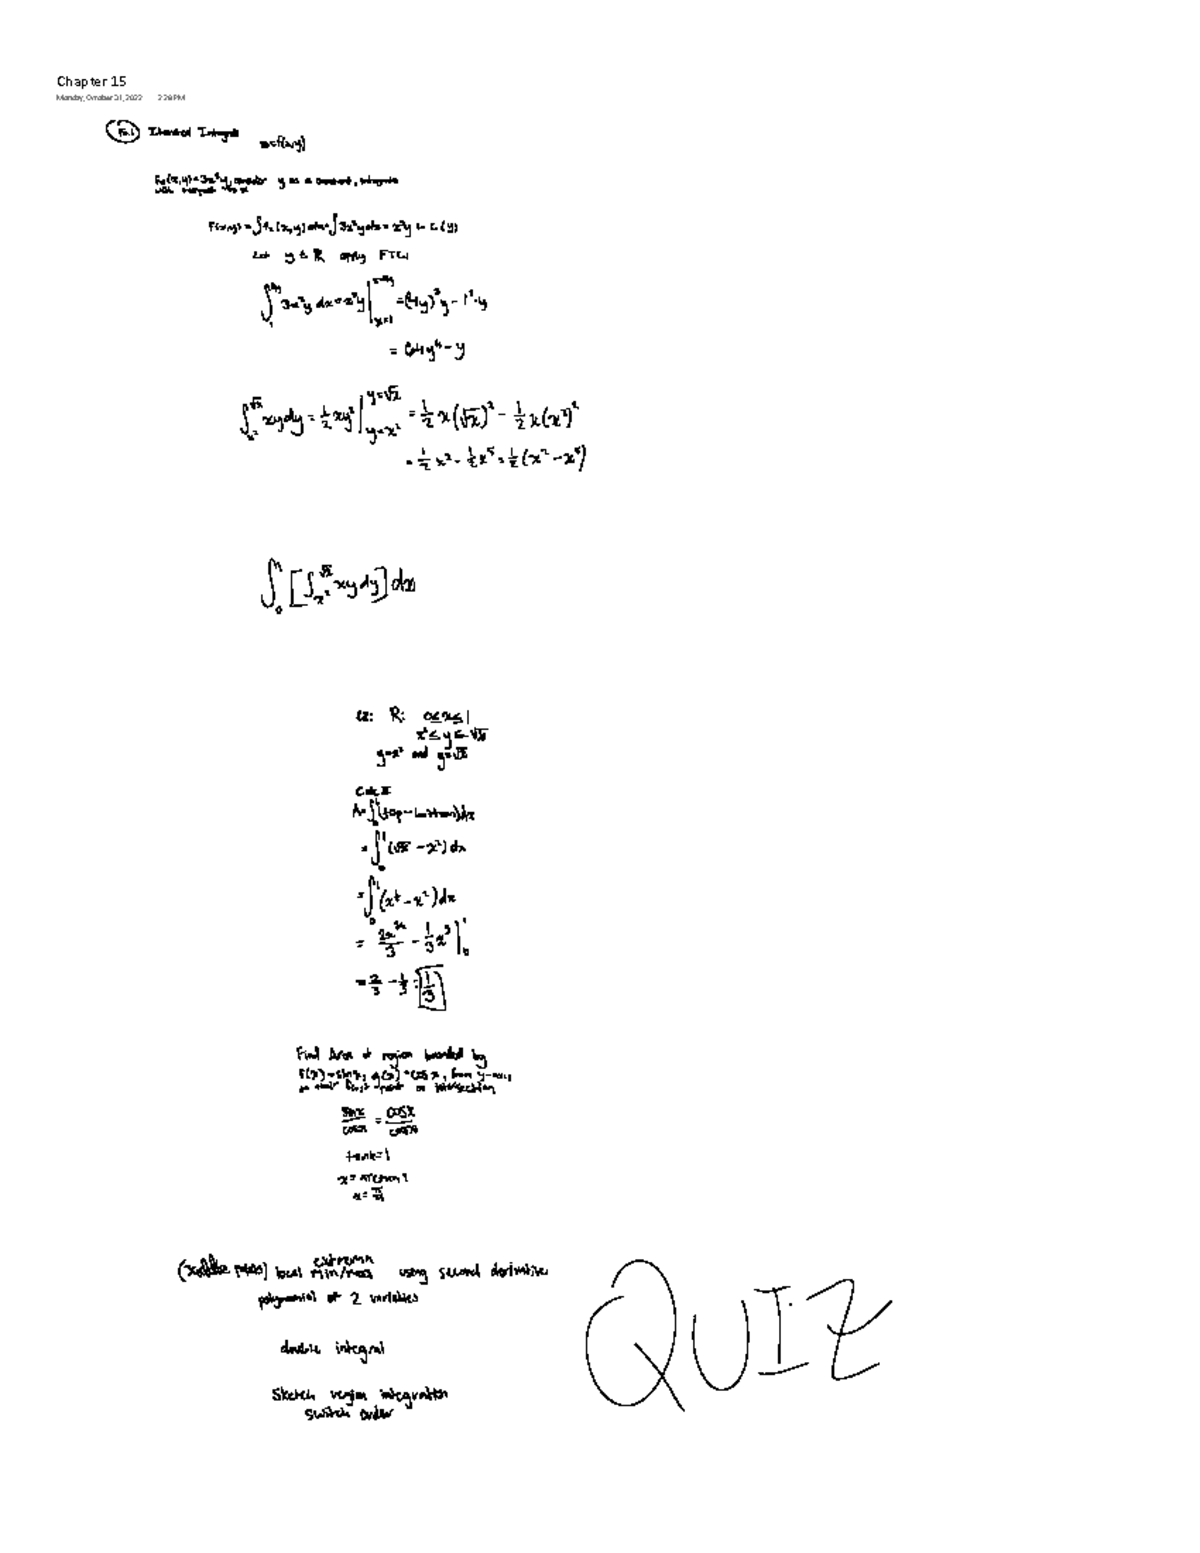 Chapter 15
Monday, October 31, 2022 2:28 PM
15.1 Iterated Integrals
z=f(x,y)
fx(x,y)=3x²y, consider y as a constant, integrate
with respect to x
f(x,y)=∫fx(x,y)dx=∫3x²ydx=x³y + C(y)
Let y ∈ ℝ apply FTC
∫₁^4y 3x²y dx=x³y|x=1^x=4y =(4y)³y-1³·y
= 64y⁴-y
∫x²^√x xydy=½xy²|y=x²^y=√x =½x(√x)²-½x(x²)²
=½x²-½x⁵=½(x²-x⁵)
∫₀¹[∫x²^√x xydy]dx
ex: R: 0≤x≤1
x²≤y≤√x
y=x² and y=√x
Calc II
A=∫(top-bottom)dx
=∫₀¹(√x-x²)dx
=∫₀¹(x^½-x²)dx
= 2x^3/2/3 - ⅓x³|₀¹
=⅔-⅓=⅓
Find Area of region bounded by
f(x)=sinx, g(x)=cosx, from y-axis,
to their first point of intersection
sinx/cosx = cosx/cosx
tanx=1
x=arctan1
x=π/4
local extrema min/max using second derivative
polynomial of 2 variables
double integral
Sketch region integration
switch order
QUIZ